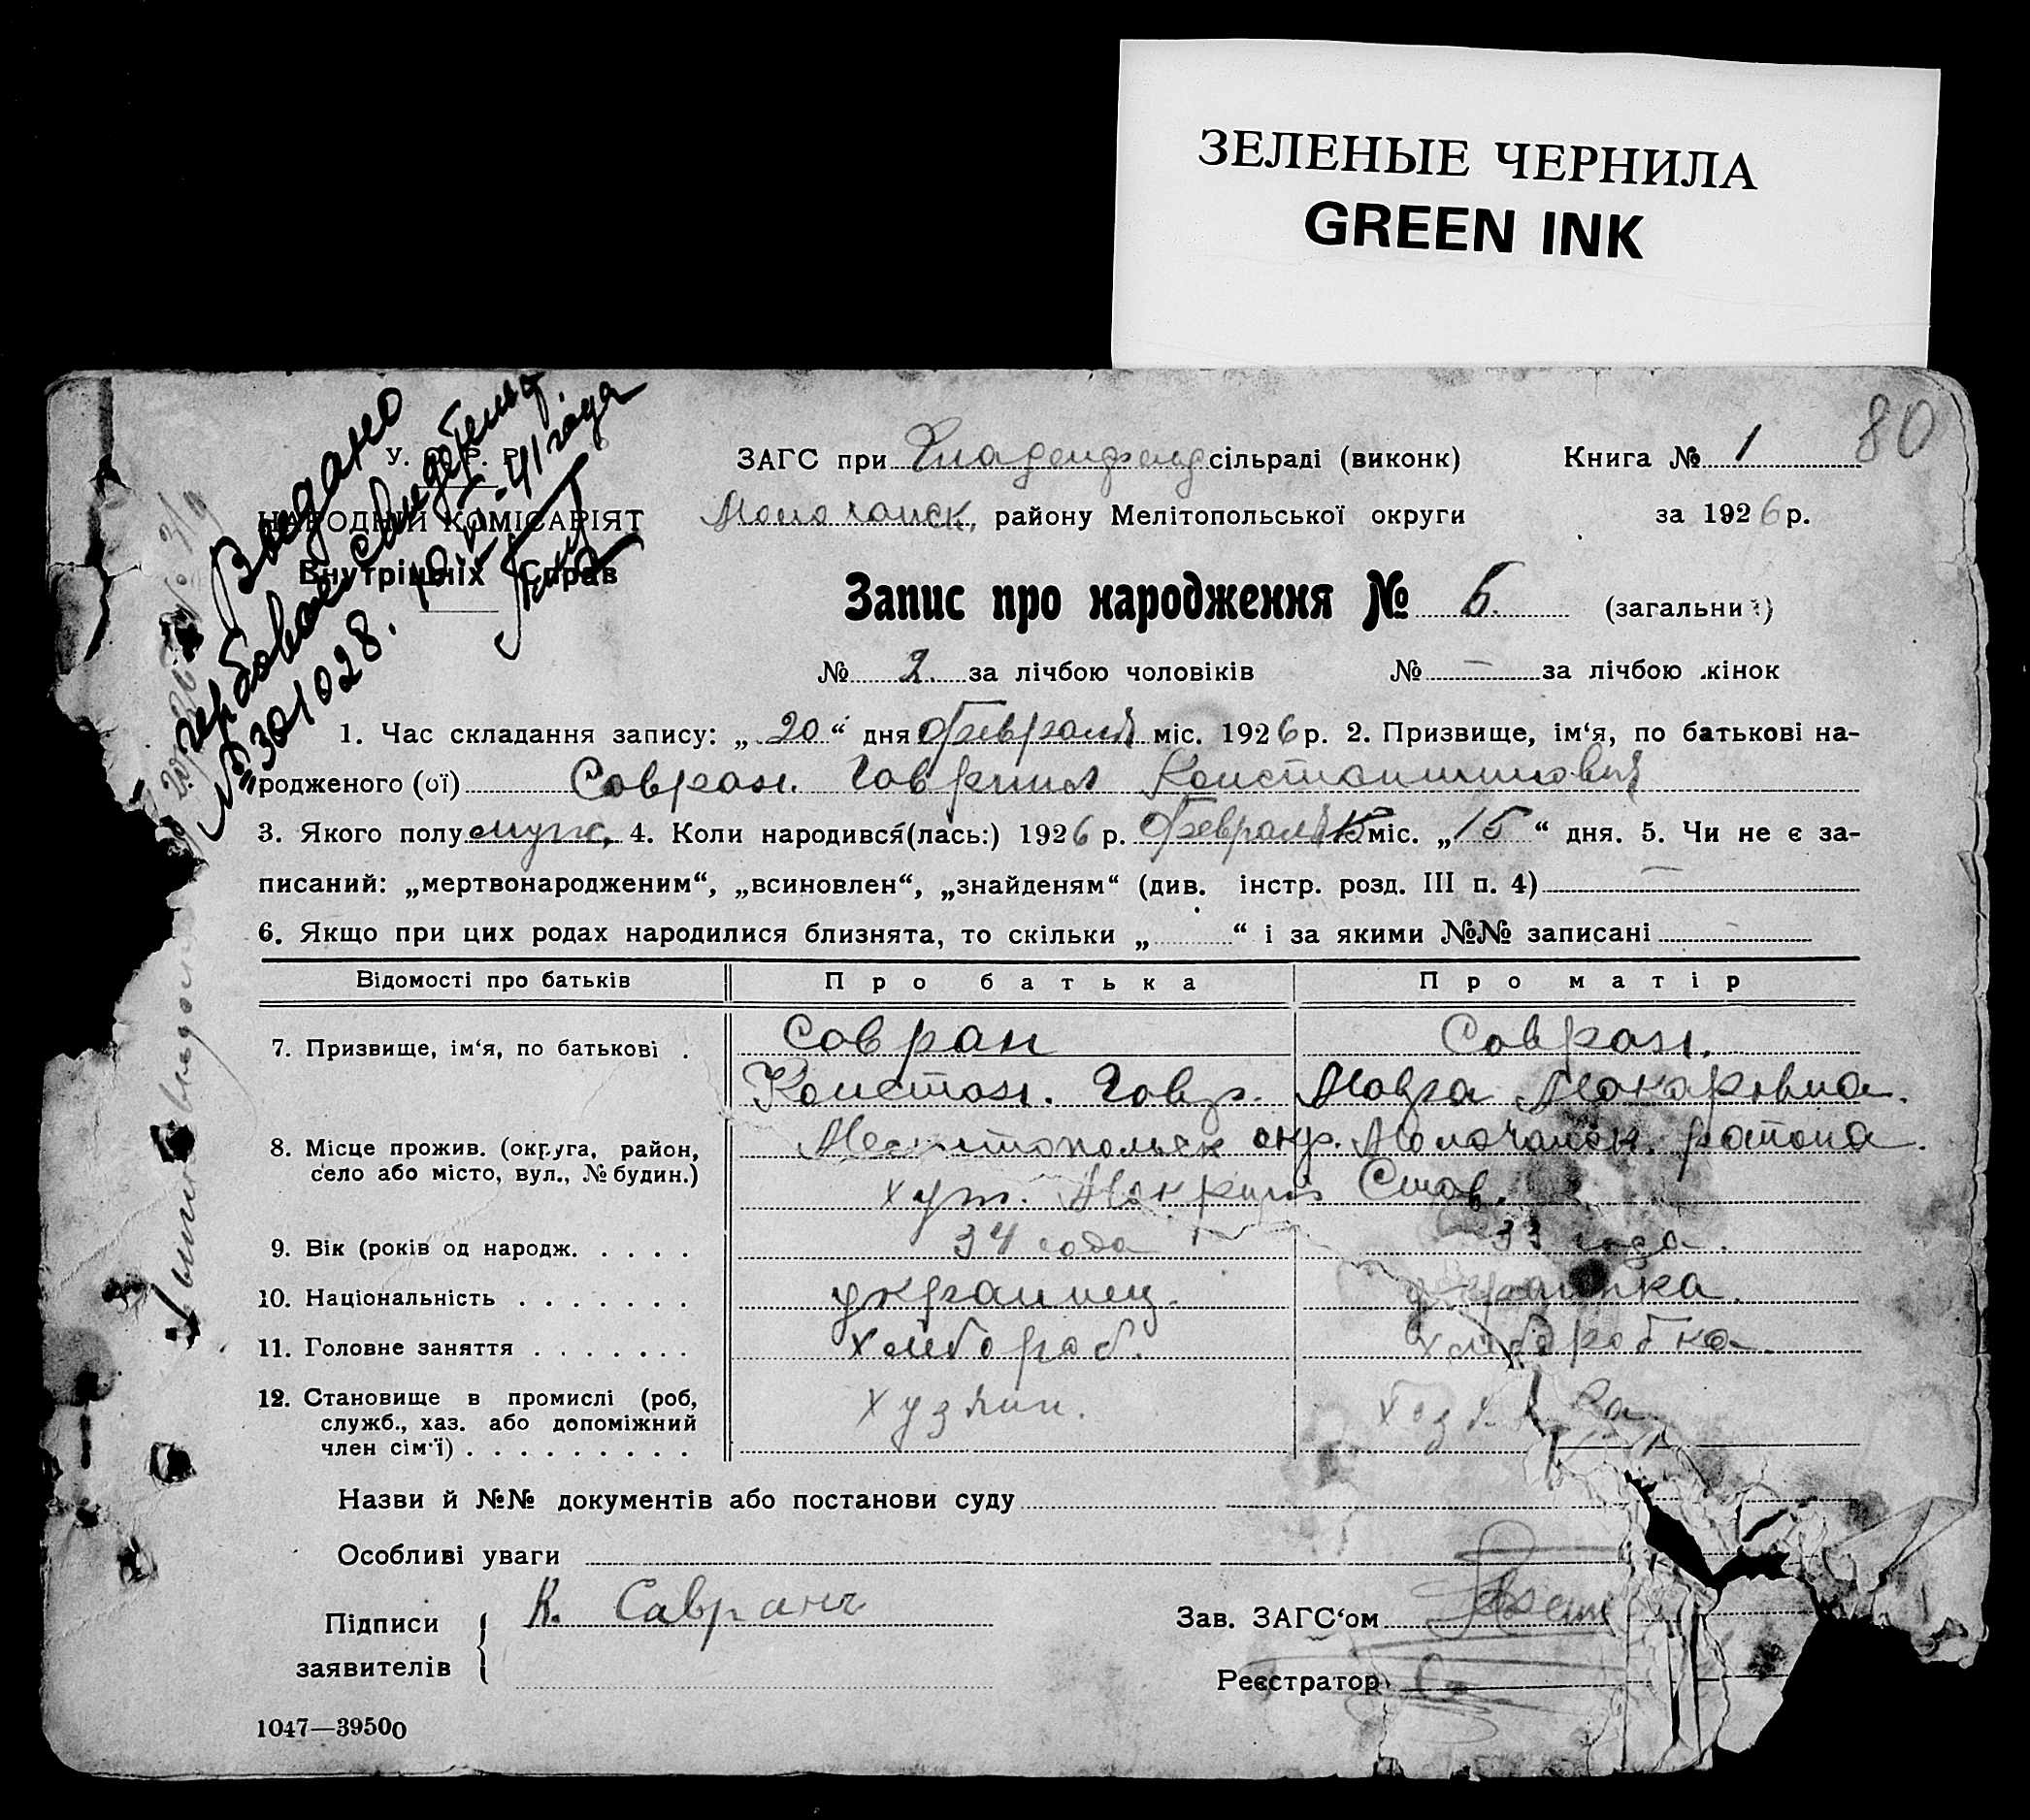 ЗЕЛЕНЫЕ ЧЕРНИЛА
GREEN INK
80
Выдано
гербовое свидетельст.
№ 301028.
41 года
У. Р. Р.
НАРОДНИЙ КОМІСАРІЯТ
Внутрішніх Справ
ЗАГС при Гнаденфельд сільраді (виконк) Книга № 1
Молочанск. району Мелітопольської округи за 1926 р.
Запис про народження № 6. (загальний)
№ 2. за лічбою чоловіків № — за лічбою жінок
1. Час складання запису: „20“ дня февраля міс. 1926 р. 2. Призвище, ім‘я, по батькові на-
родженого (ої) Совран. Гавриил Константинович
3. Якого полу муж. 4. Коли народився(лась:) 1926 р. февраля 15 міс. „15“ дня. 5. Чи не є за-
писаний: „мертвонародженим“, „всиновлен“, „знайденям“ (див. інстр. розд. III п. 4) —
6. Якщо при цих родах народилися близнята, то скільки „ “ і за якими №№ записані —
Відомості про батьків Про батька Про матір
7. Призвище, ім‘я, по батькові . Совран Совран.
Констан. Гавр. Мавра Макаровна.
8. Місце прожив. (округа, район, Мелитопольск окр. Молочанск. района.
село або місто, вул., № будин.) хут. Мокрый Став.
9. Вік (років од народж. . . . . 34 года 33 года.
10. Національність . . . . . . . украинец. украинка.
11. Головне заняття . . . . . . . хлебороб. хлеборобка.
12. Становище в промислі (роб, хузяин.
служб., хаз. або допоміжний
член сім‘ї) . . . . . . . . .
Назви й №№ документів або постанови суду
Особливі уваги
Підписи К. Савранъ Зав. ЗАГС‘ом
заявителів Реєстратор
1047—39500